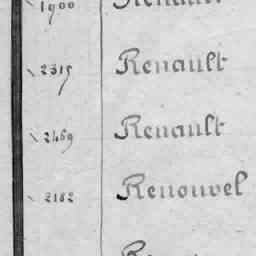 1900 Renault
2315 Renault
2469 Renault
2182 Renouvel